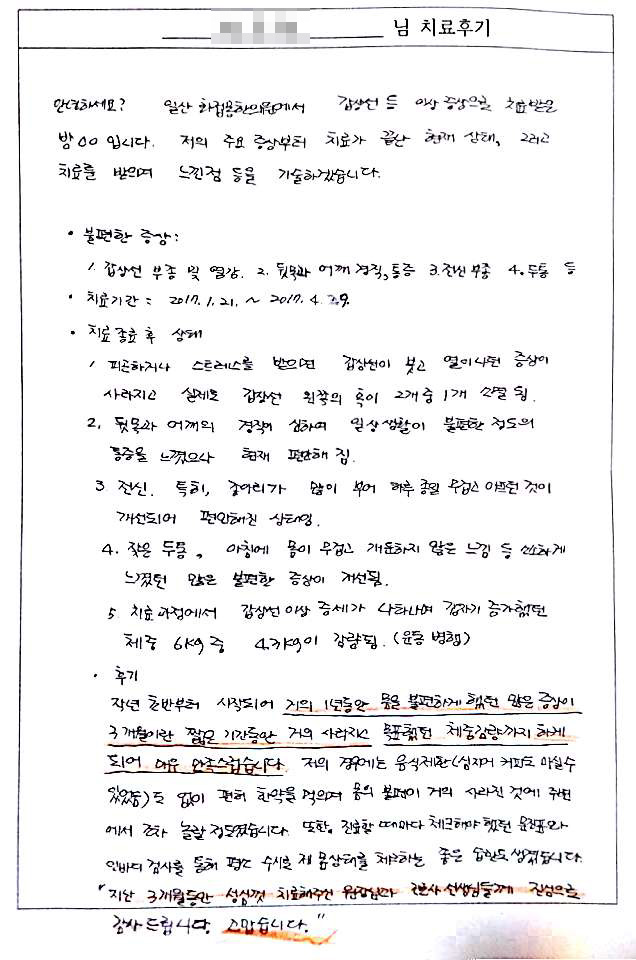 님 치료후기
안녕하세요? 일산 화접몽한의원에서 갑상선 등 이상 증상으로 치료받은
방○○입니다. 저의 주요 증상부터 치료가 끝난 현재 상태, 그리고
치료를 받으며 느낀점 등을 기술하겠습니다.
• 불편한 증상:
1. 갑상선 부종 및 열감. 2. 뒷목과 어깨 경직, 통증 3. 전신 부종 4. 두통 등
• 치료기간 : 2017. 1. 21. ~ 2017. 4. 29.
• 치료 종료 후 상태
1. 피곤하거나 스트레스를 받으면 갑상선이 붓고 열이나던 증상이
사라지고 실제로 갑상선 왼쪽의 혹이 2개 중 1개 소멸 됨.
2. 뒷목과 어깨의 경직이 심하여 일상생활이 불편한 정도의
통증을 느꼈으나 현재 편안해 짐.
3. 전신. 특히, 종아리가 많이 부어 하루 종일 무겁고 아프던 것이
개선되어 편안해진 상태임.
4. 잦은 두통, 아침에 몸이 무겁고 개운하지 않은 느낌 등 소소하게
느꼈던 많은 불편한 증상이 개선됨.
5. 치료과정에서 갑상선이상 증세가 나타나며 갑자기 증가했던
체중 6kg 중 4.7kg이 감량됨. (운동 병행)
• 후기
작년 초반부터 시작되어 거의 1년동안 몸을 불편하게 했던 많은 증상이
3개월이란 짧은 기간동안 거의 사라지고 목표했던 체중감량까지 하게
되어 매우 만족스럽습니다. 저의 경우에는 음식제한(심지어 커피도 마실수
있었음)도 없이 편히 한약을 먹으며 몸의 불편이 거의 사라진 것에 주변
에서 조차 놀랄 정도였습니다. 또한, 진료할 때마다 체크해야 했던 문진표와
인바디 검사를 통해 평소 수시로 제 몸상태를 체크하는 좋은 습관도 생겼습니다.
"지난 3개월동안 성심껏 치료해주신 원장님과 간호사 선생님들께 진심으로
감사드립니다. 고맙습니다."